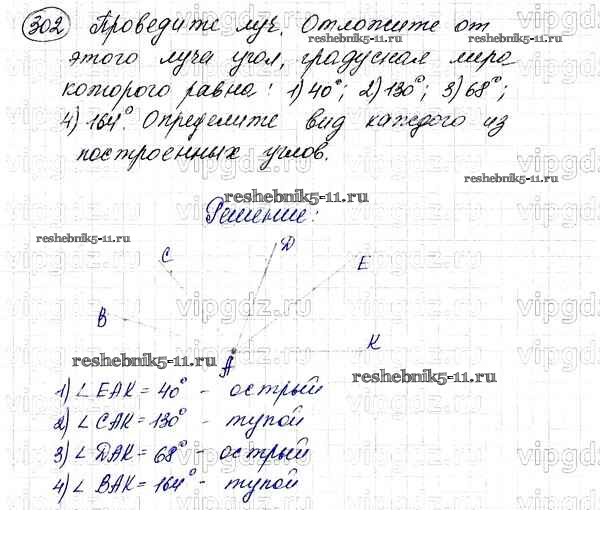 302 Проведите луч. Отложите от
этого луча угол, градусная мера
которого равна: 1) 40°; 2) 130°; 3) 68°;
4) 164°. Определите вид каждого из
построенных углов.
reshebnik5-11.ru
reshebnik5-11.ru
reshebnik5-11.ru
Решение:
reshebnik5-11.ru
C
D
E
B
K
A
reshebnik5-11.ru
reshebnik5-11.ru
1) ∠ EAK = 40° - острый
2) ∠ CAK = 130° - тупой
3) ∠ DAK = 68° - острый
4) ∠ BAK = 164° - тупой
vipgdz.ru